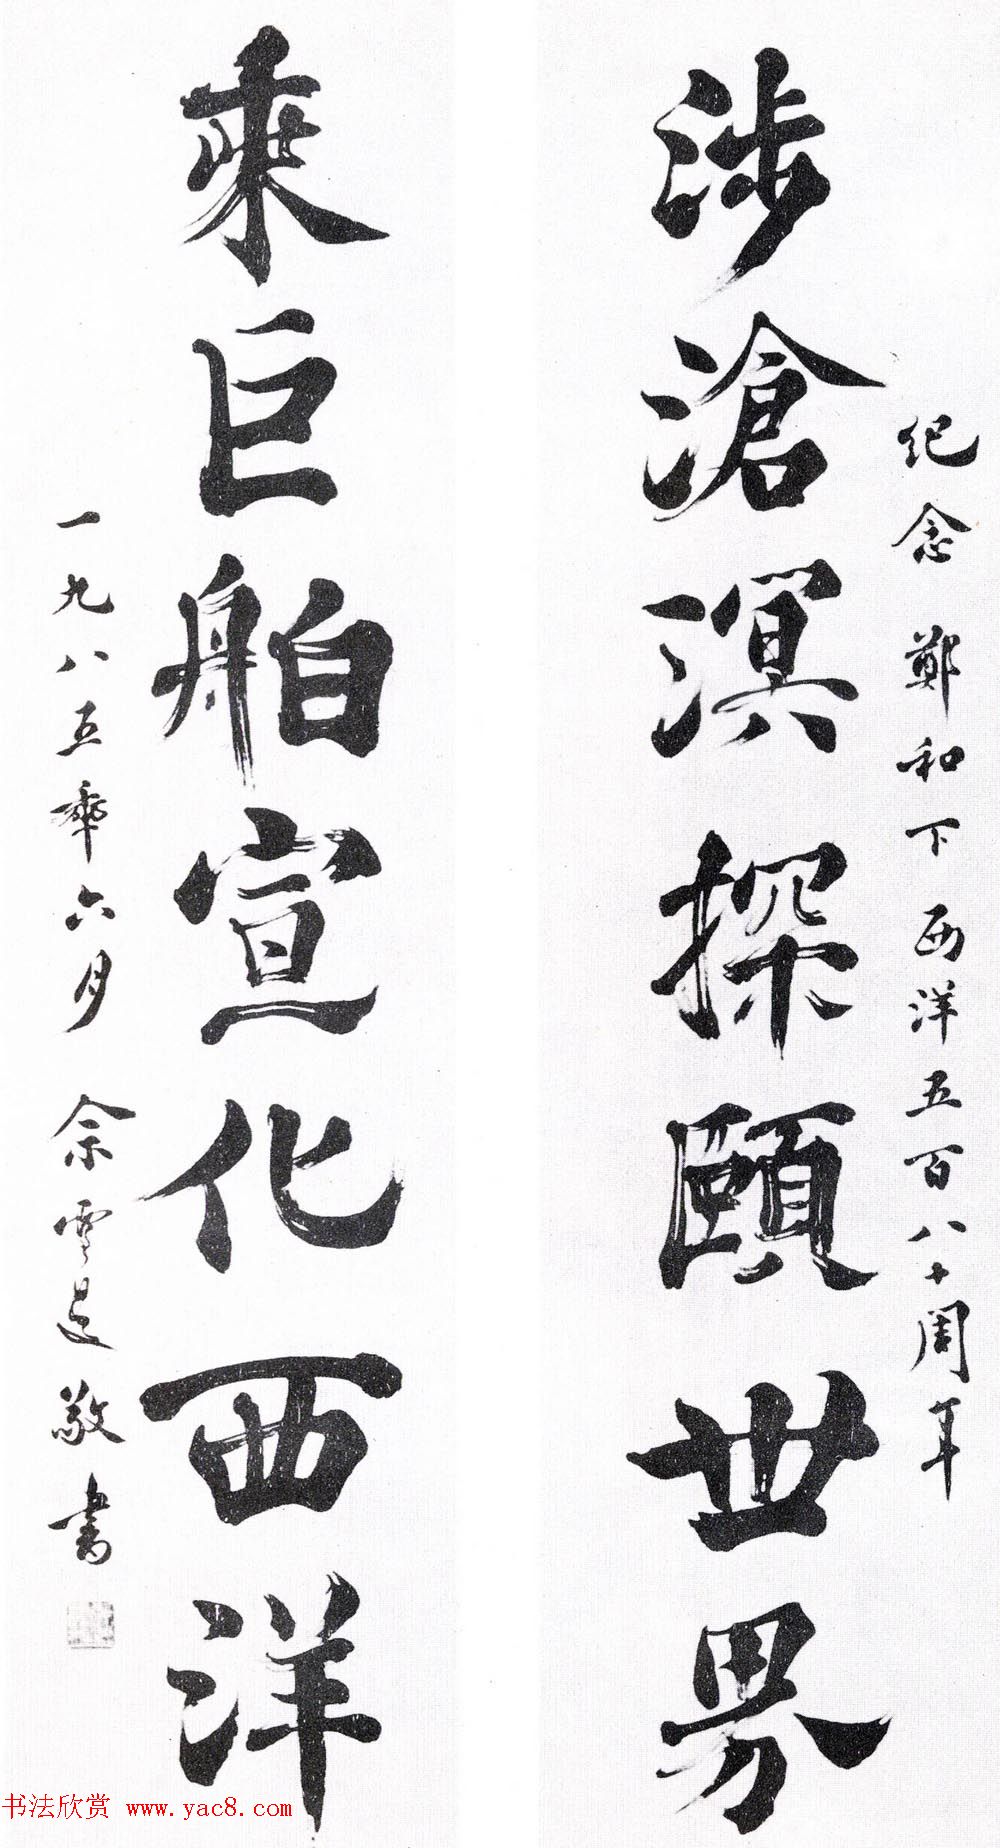 纪念鄭和下西洋五百八十周年
涉滄溟探頤世界
乘巨舶宣化西洋
一九八五年六月 佘雪曼敬書
书法欣赏 www.yac8.com